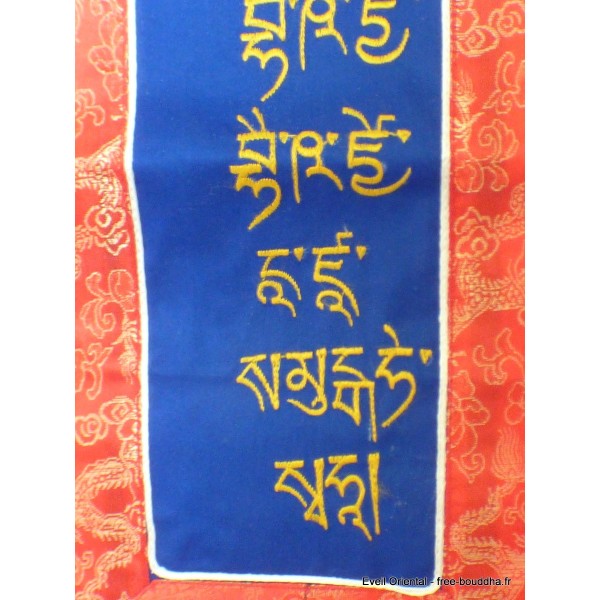 བྷཻ་ཥ་ཛྱེ་
རཱ་ཛཱ་
སམུདྒཏེ་
སྭཧཱ།
Eveil Oriental - free-bouddha.fr